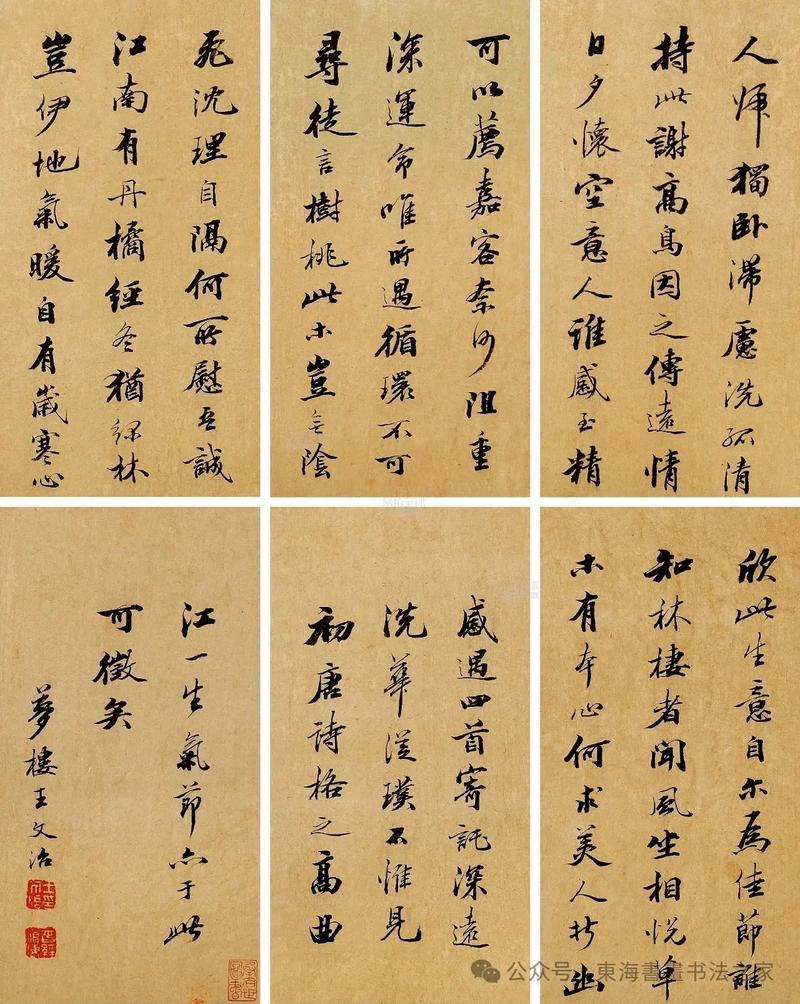 人歸獨卧滯慮洗孤清
持此謝高鳥因之傳遠情
日夕懷空意人誰感至精
可以薦嘉客奈何阻重
深運命唯所遇循環不可
尋徒言樹桃此木豈無陰
飛沈理自隔何所慰吾誠
江南有丹橘經冬猶綠林
豈伊地氣暖自有歲寒心
欣此生意自尔為佳節誰
知林棲者聞風坐相悅草
木有本心何求美人折幽
感遇四首寄託深遠
洗華從璞不惟見
初唐詩格之高曲
江一生氣節亦于此
可徵矣
夢樓王文治
公众号 · 東海書畫书法之家